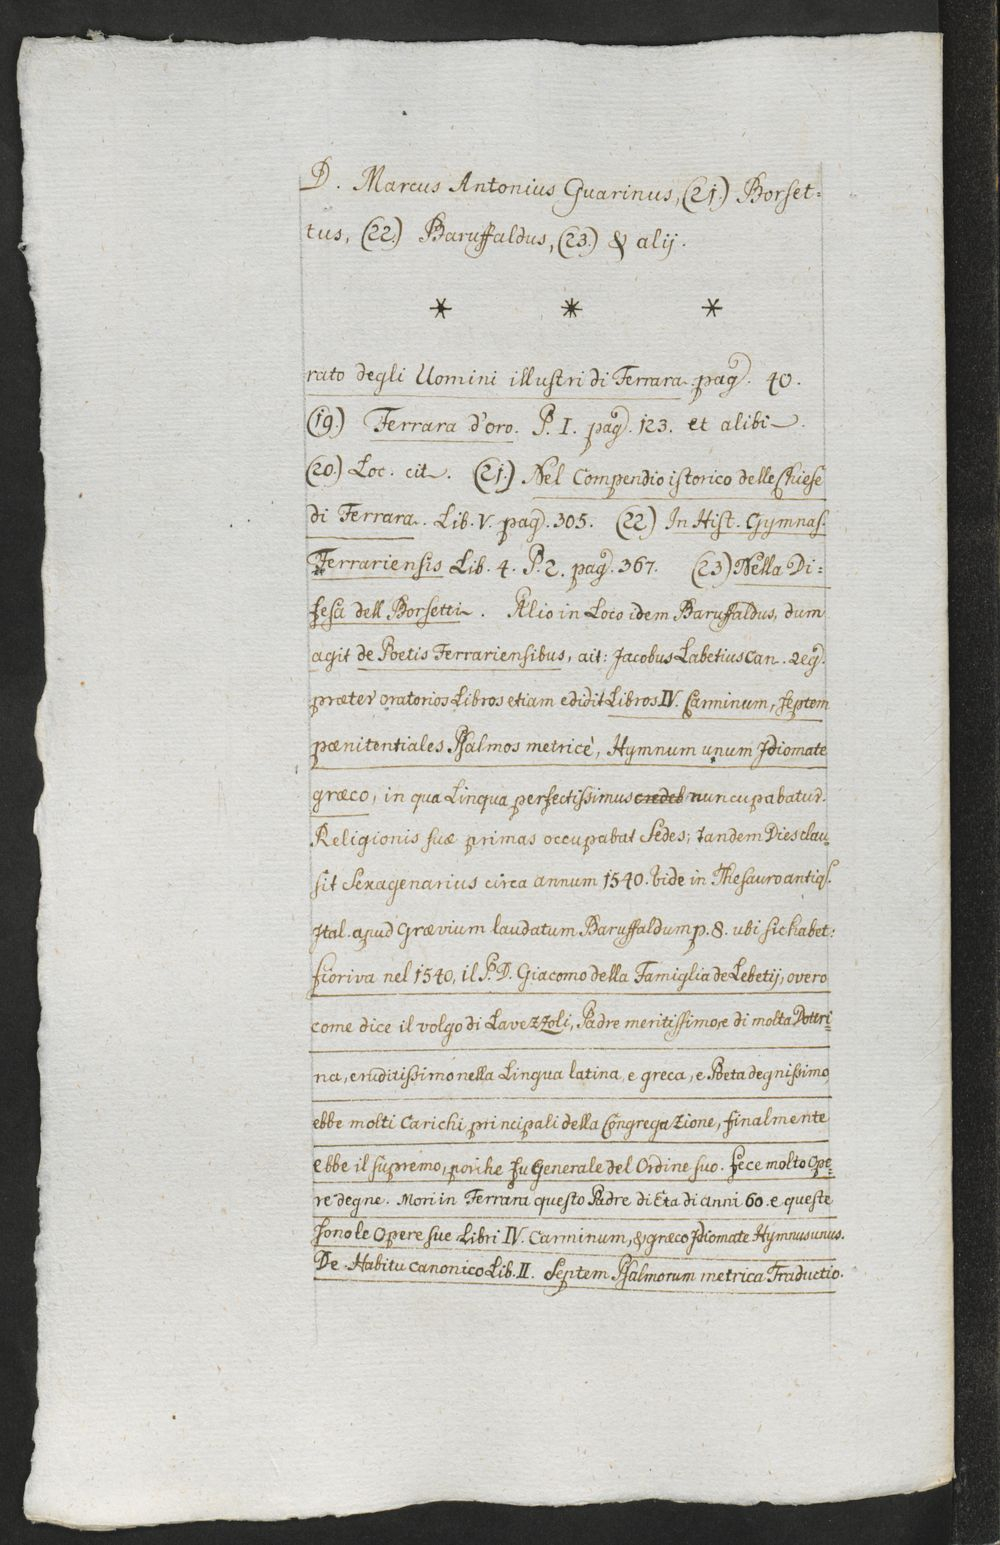 D. Marcus Antonius Guarinus, (21.) Borset=
tus, (22.) Baruffaldus, (23.) & alij.
* * *
rato degli Uomini illustri di Ferrara pag. 40.
(19.) Ferrara d'oro. P. I. pag. 123. et alibi.
(20.) Loc. cit. (21.) Nel Compendio istorico delle Chiese
di Ferrara. Lib. V. pag. 305. (22) In Hist. Gymnas.
Ferrariensis Lib. 4. P. 2. pag. 367. (23) Nella Di=
fesa dell Borsetti. Alio in Loco idem Baruffaldus, dum
agit de Poetis Ferrariensibus, ait: Jacobus Labetius Can. Reg.
præter oratorios Libros etiam edidit Libros IV. Carminum, septem
pænitentiales Psalmos metricè, Hymnum unum Jdiomate
græco, in qua Lingua perfectissimus credeb nuncupabatur.
Religionis suæ primas occupabat Sedes; tandem Dies clau=
sit Sexagenarius circa annum 1540. Vide in Thesauro antiq.
Jtal. apud Grævium laudatum Baruffaldum p. 8. ubi sic habet:
fioriva nel 1540, il P. D. Giacomo della Famiglia de Lebetij, overo
come dice il volgo di Lavezzoli, Padre meritissimo, e di molta Dottri=
na, eruditissimo nella Lingua latina, e greca, e Poeta degnissimo
ebbe molti Carichi principali della Congregazione, finalmente
ebbe il supremo, poiche fu Generale del Ordine suo. fece molto Ope=
re degne. Mori in Ferrara questo Padre di Eta di anni 60. e queste
sono le Opere sue Libri IV. Carminum, & græco Jdiomate Hymnus unus.
De Habitu canonico Lib. II. Septem Psalmorum metrica Traductio.